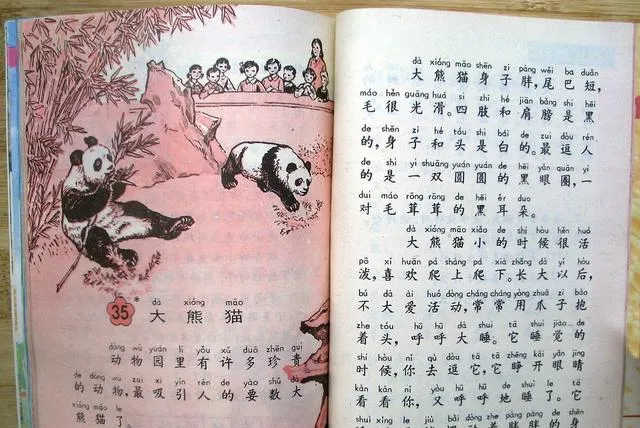 dà xióng māo
35 大熊猫
dòng wù yuán lǐ yǒu xǔ duō zhēn guì
动物园里有许多珍贵
de dòng wù zuì xī yǐn rén de yào shǔ dà
的动物,最吸引人的要数大
xióng māo le
熊猫了。
dà xióng māo shēn zi pàng wěi ba duǎn
大熊猫身子胖,尾巴短,
máo hěn guāng huá sì zhī hé jiān bǎng shì hēi
毛很光滑。四肢和肩膀是黑
de shēn zi hé tóu shì bái de zuì dòu rén
的,身子和头是白的。最逗人
de shì yì shuāng yuán yuán de hēi yǎn quān yí
的是一双圆圆的黑眼圈,一
duì máo rōng rōng de hēi ěr duo
对毛茸茸的黑耳朵。
dà xióng māo xiǎo de shí hòu hěn huó
大熊猫小的时候很活
pō xǐ huān pá shàng pá xià zhǎng dà yǐ hòu
泼,喜欢爬上爬下。长大以后,
bú dà ài huó dòng cháng cháng yòng zhuǎ zi bào
不大爱活动,常常用爪子抱
zhe tóu hū hū dà shuì tā shuì jiào de
着头,呼呼大睡。它睡觉的
shí hòu nǐ qù dòu tā tā zhēng kāi yǎn jing
时候,你去逗它,它睁开眼睛
kàn kàn nǐ yòu hū hū de shuì le tā
看看你,又呼呼地睡了。它
shuì xǐng le jiù bǎi dòng zhe pàng pàng de shēn
睡醒了,就摆动着胖胖的身